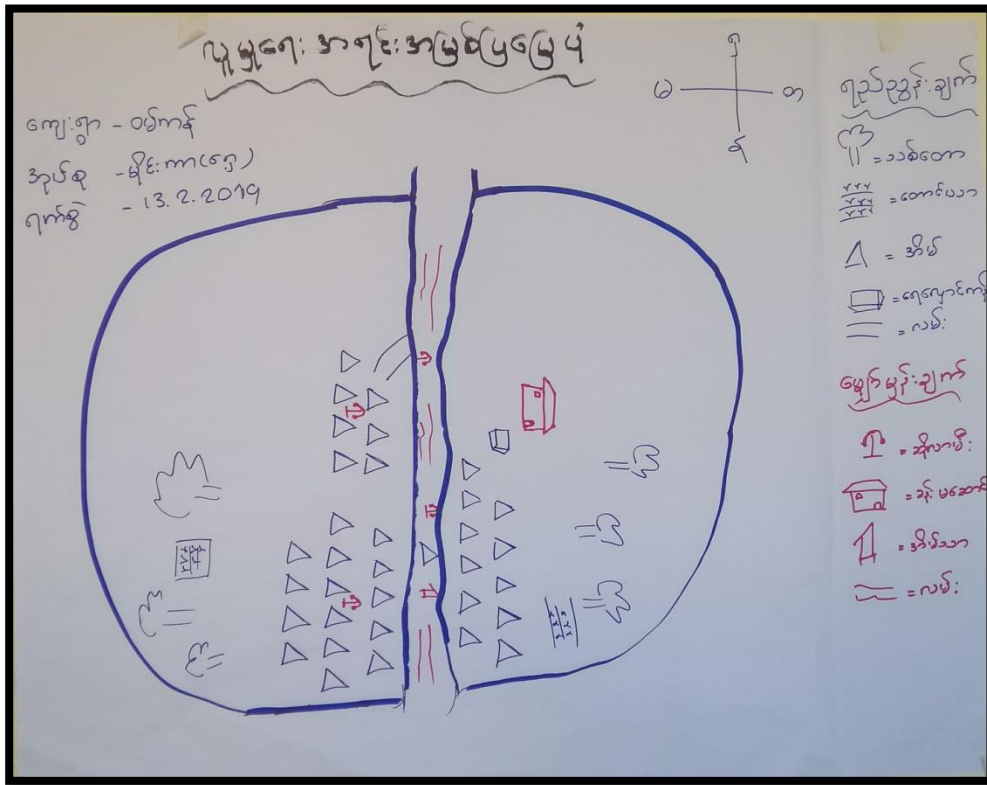 လူမှုရေး အရင်းအမြစ်ပြမြေပုံ
ကျေးရွာ - ဝမ်ကန်
အုပ်စု - မိုင်းကာ(ရှေ့)
ရက်စွဲ - 13.2.2019
မ တ
ရည်ညွှန်းချက်
= သစ်တော
= တောင်ယာ
= အိမ်
= ရေလှောင်ကန်
= လမ်း
မျှော်မှန်းချက်
= ဆိုလာမီး
= ခန်းမဆောင်
= အိမ်သာ
= လမ်း